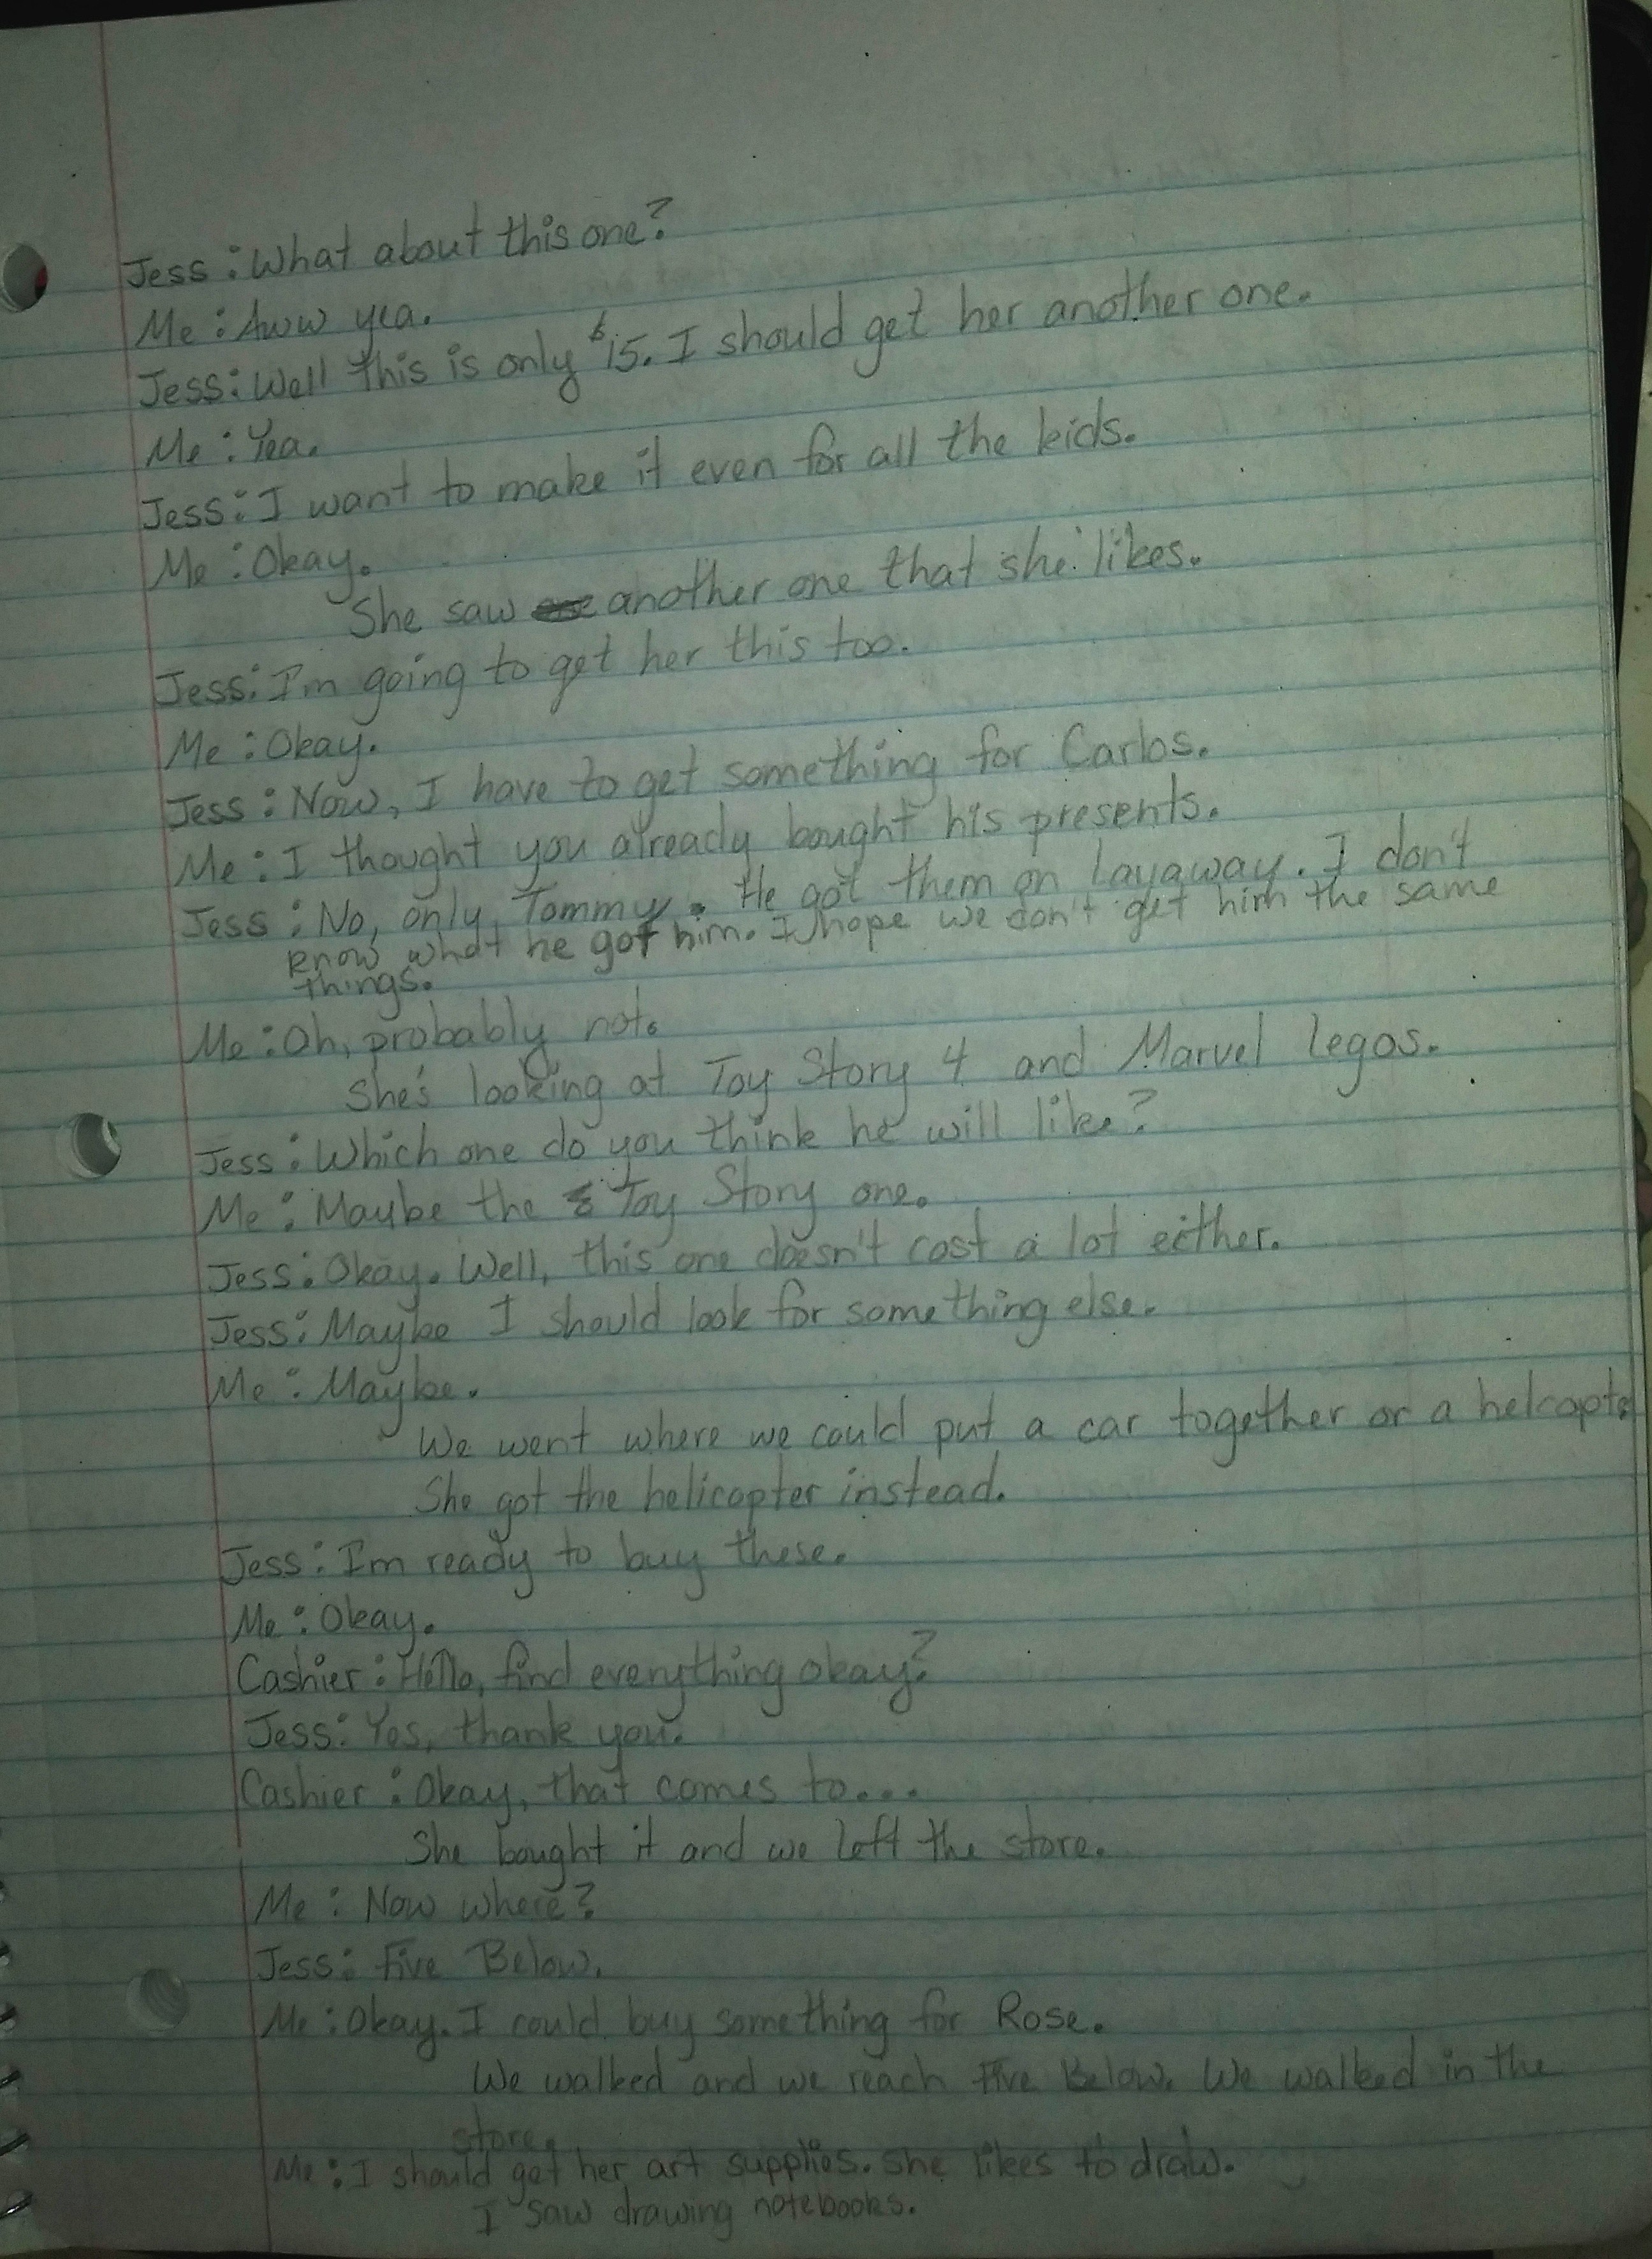 Jess: What about this one?
Me: Aww yea.
Jess: Well this is only $15. I should get her another one.
Me: Yea.
Jess: I want to make it even for all the kids.
Me: Okay.
She saw another one that she likes.
Jess: I'm going to get her this too.
Me: Okay.
Jess: Now, I have to get something for Carlos.
Me: I thought you already bought his presents.
Jess: No, only Tommy. He got them on layaway. I don't
know what he got him. I hope we don't get him the same
things.
Me: Oh, probably not.
She's looking at Toy Story 4 and Marvel legos.
Jess: Which one do you think he will like?
Me: Maybe the Toy Story one.
Jess: Okay. Well, this one doesn't cost a lot either.
Jess: Maybe I should look for something else.
Me: Maybe.
We went where we could put a car together or a helcopte
She got the helicopter instead.
Jess: I'm ready to buy these.
Me: Okay.
Cashier: Hello, find everything okay?
Jess: Yes, thank you.
Cashier: Okay, that comes to...
She bought it and we left the store.
Me: Now where?
Jess: Five Below.
Me: Okay. I could buy something for Rose.
We walked and we reach Five Below. We walked in the
store.
Me: I should get her art supplies. She likes to draw.
I saw drawing notebooks.